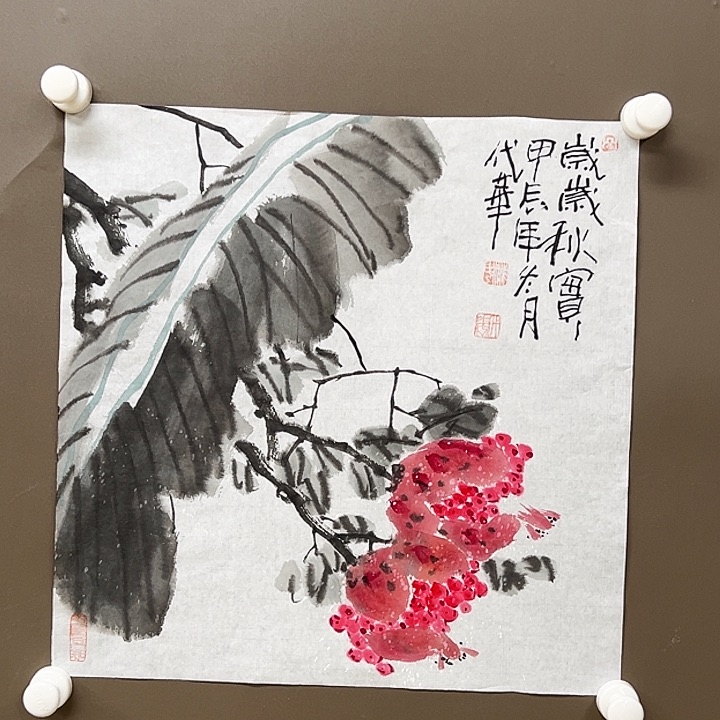 歲歲秋實
甲辰年冬月
代華